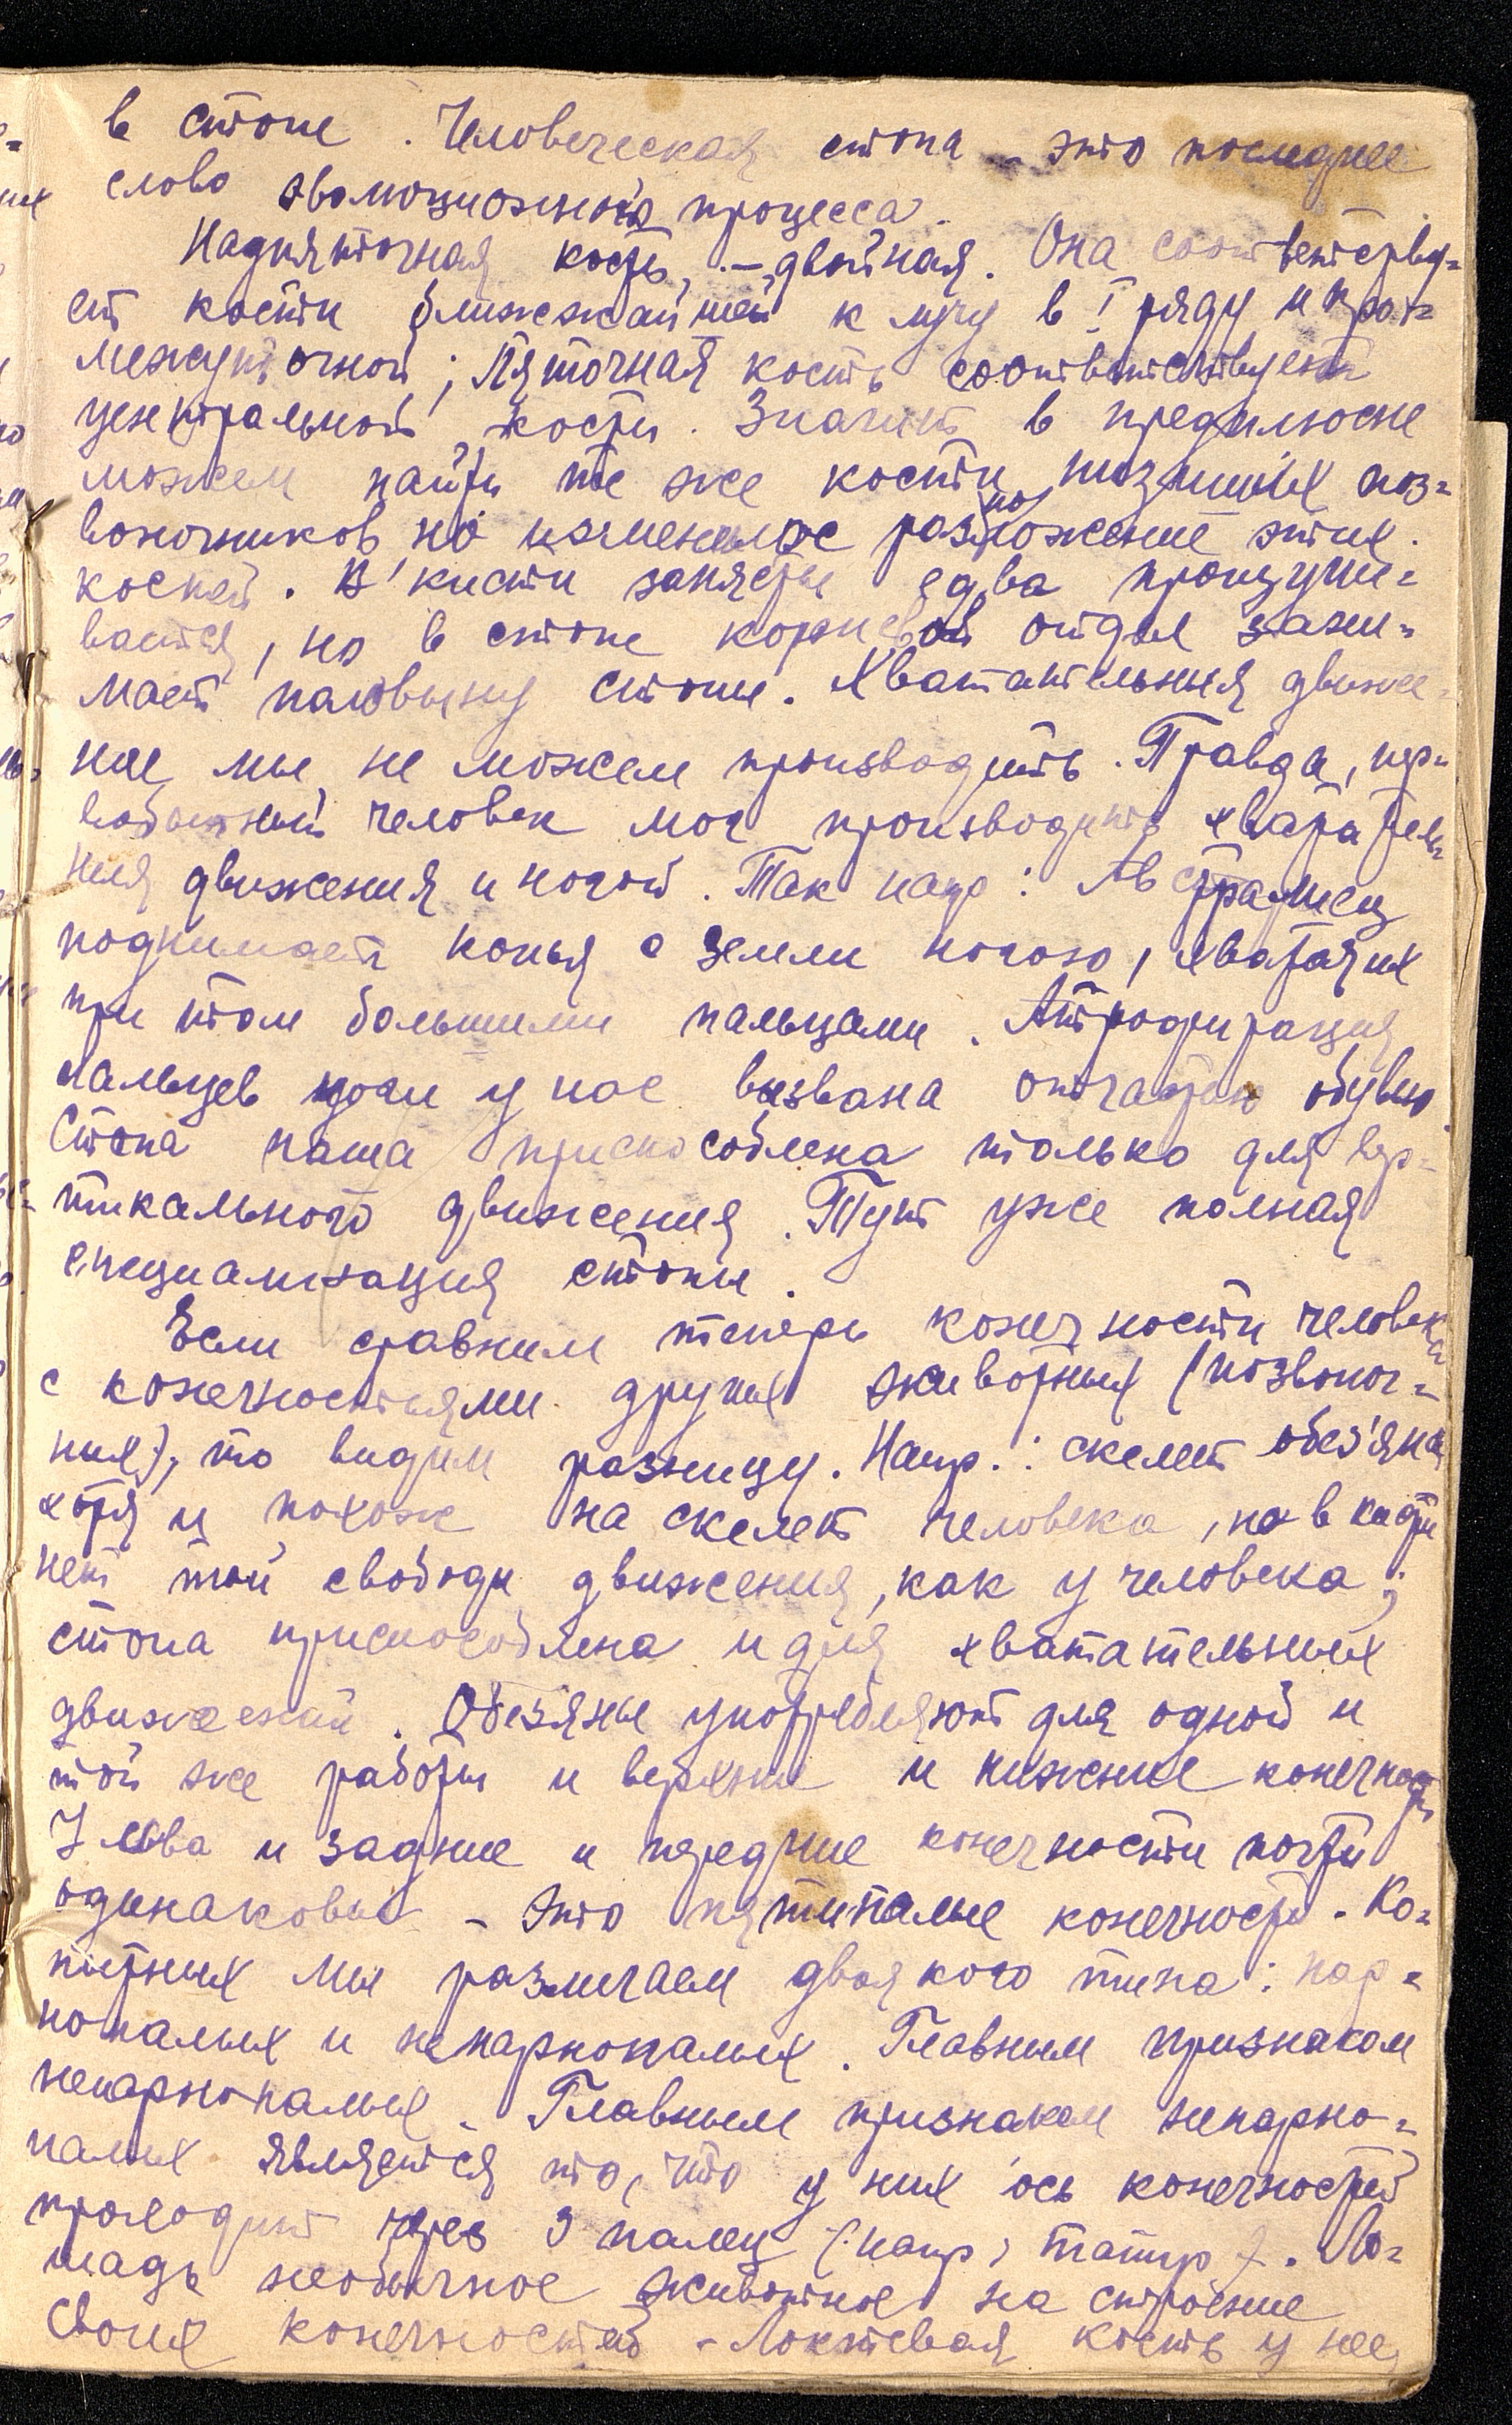 в стопе. Человеческая стопа - это последнее
слово эволюционного процесса.
Надпяточная кость, - двойная. Она соответству=
ет кости ближжайшей к лучу в I ряду и про=
межуточной; Пяточная кость соответствует
центральной кости. Значит в предплюсне
можем найти те же кости низших поз=
воночников, но изменилось расположение этих
костей. В кисти запястье едва прощупы=
вается, но в стопе корневой отдел зани=
мает половину стопы. Хватательныя движе=
ние мы не можем производить. Правда, пер=
вобытный человек мог производить хвататель
ныя движения и ногой. Так напр: Австралиец
поднимает копья с земли ногою, хватая их
при том большими пальцами. Атрофирация
пальцев ноги у нас вызвана отчасти обувью.
Стопа наша приспособлена только для вер=
тикального движения. Тут уже полная
специализация стопы.
Если сравним теперь конечности человека
с конечностями других животных (позвоноч=
ных), то видим разницу. Напр.: скелет обез'яны
хотя и похож на скелет человека, но в кисти
нет той свободы движения, как у человека;
стопа приспособлена и для хватательных
движений. Обезяны употребляют для одной и
той же работы и верхние и нижние конечности
У льва и задние и передние конечности почти
одинаковы - это пятипалые конечности. Ко=
пытных мы различаем двоякого типа: пар=
нопалых и непарнопалых. Главным признаком
непарнопалых. Главным признаком непарно=
палых является то, что у них ось конечностей
проходит через 3 палец (напр; тапир). Ло=
шадь необычное животное на строение
своих конечностей - Локтевая кость у нее